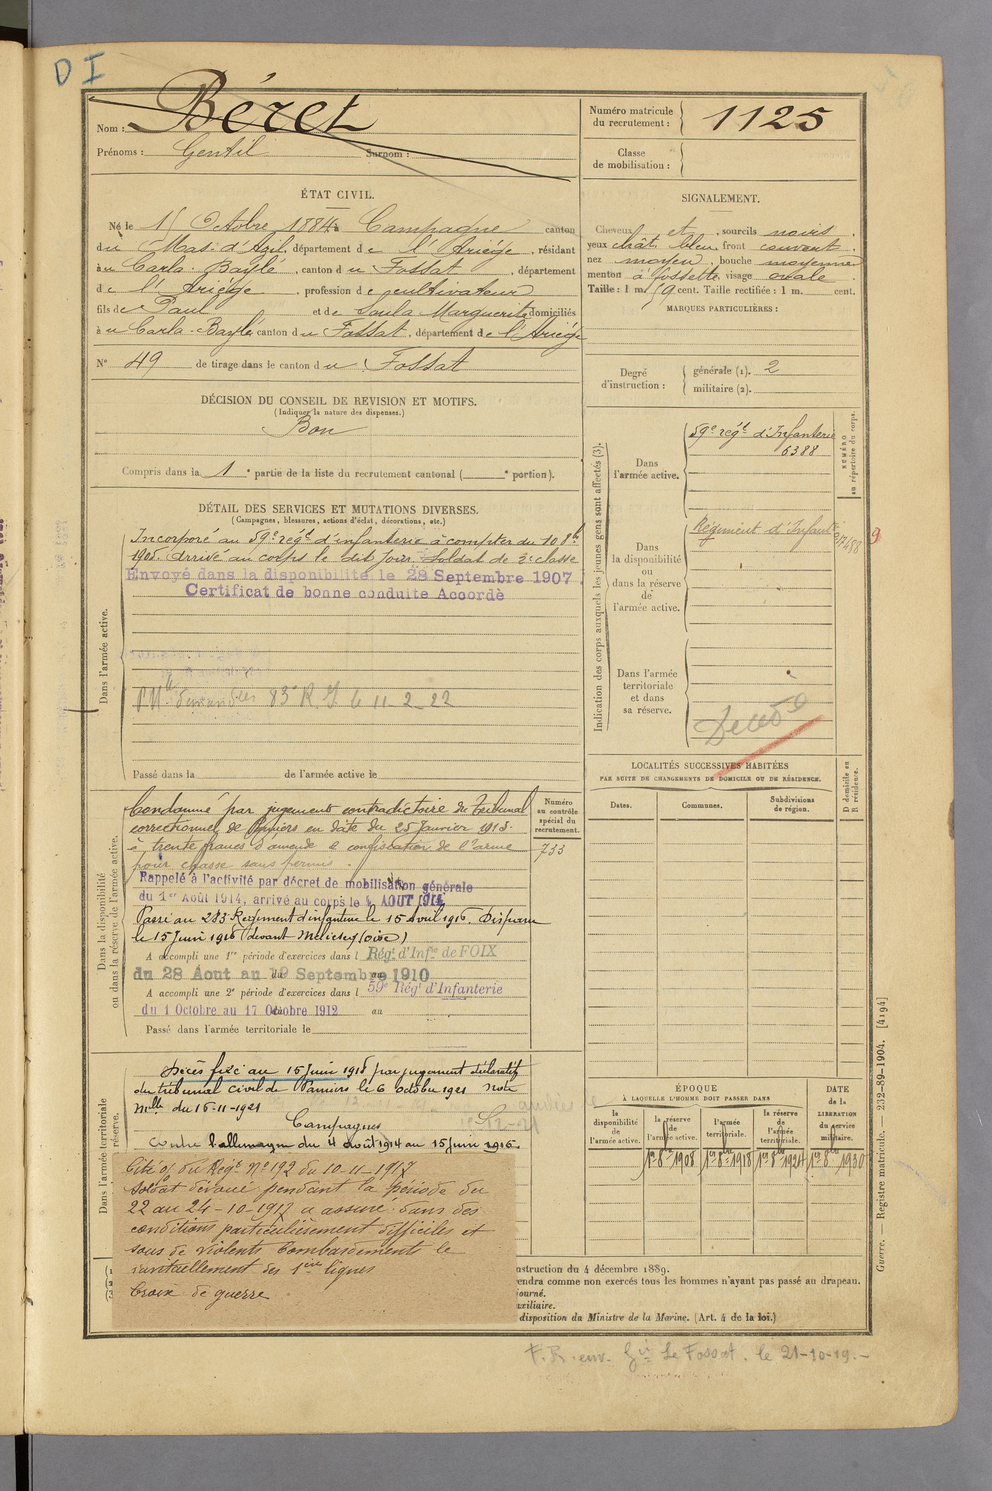 D I
Nom : Béret
Prénoms : Gentil Surnom :
Numéro matricule
du recrutement : 1125
Classe
de mobilisation :
ÉTAT CIVIL.
Né le 15 Octobre 1884 à Campagne canton
du Mas-d'Azil, département de l'Ariège, résidant
à u Carla-Bayle, canton du Fossat, département
de l'Ariège, profession de cultivateur
fils de Paul et de Soula Marguerite domiciliés
à u Carla-Bayle canton du Fossat, département de l'Ariège
N° 49 de tirage dans le canton du Fossat
DÉCISION DU CONSEIL DE REVISION ET MOTIFS.
(Indiquer la nature des dispenses.)
Bon
Compris dans la 1e partie de la liste du recrutement cantonal ( e portion).
SIGNALEMENT.
Cheveux et , sourcils noirs
yeux chât. bleu, front couvert,
nez moyen, bouche moyenne
menton à fossette, visage ovale
Taille : 1 m. 59 cent. Taille rectifiée : 1 m. cent.
MARQUES PARTICULIÈRES :
Degré
d'instruction :
générale (1). 2
militaire (2).
DÉTAIL DES SERVICES ET MUTATIONS DIVERSES.
(Campagnes, blessures, actions d'éclat, décorations, etc.)
Dans l'armée active.
Incorporé au 59e régt d'infanterie à compter du 10 8bre
1905 arrivé au corps le dit jour. Soldat de 2e classe
Envoyé dans la disponibilité le 28 Septembre 1907
Certificat de bonne conduite Accordé
83e R.I. le 11-2-22
Passé dans la de l'armée active le
Indication des corps auxquels les jeunes gens sont affectés (3).
NUMÉRO
au répertoire du corps.
Dans
l'armée active.
59e régt d'Infanterie
6388
Dans
la disponibilité
ou
dans la réserve
de
l'armée active.
Régiment d'Infant
9
Dans l'armée
territoriale
et dans
sa réserve.
Décédé
LOCALITÉS SUCCESSIVES HABITÉES
PAR SUITE DE CHANGEMENTS DE DOMICILE OU DE RÉSIDENCE.
Dates.
Communes.
Subdivisions
de région.
D domicile ou
R résidence.
Dans la disponibilité
ou dans la réserve de l'armée active.
Condamné par jugement contradictoire du Tribunal
correctionnel de Pamiers en date du 25 Janvier 1913.
à trente francs d'amende & confiscation de l'arme
pour chasse sans permis.
Numéro
au contrôle
spécial du
recrutement.
733
Rappelé à l'activité par décret de mobilisation générale
du 1er Août 1914, arrivé au corps le 4 AOUT 1914
Passé au 283e Régiment d'infanterie le 15 Avril 1916. Disparu
le 15 Juin 1918 (devant Mélicocq (Oise)
A accompli une 1re période d'exercices dans l Régt d'Infie de FOIX
du 28 Aout au 19 Septembre 1910
A accompli une 2e période d'exercices dans l 59e Régt d'Infanterie
du 1 Octobre au 17 Octobre 1912 au
Passé dans l'armée territoriale le
Dans l'armée territoriale
réserve.
Décès fixé au 15 Juin 1918 par jugement déclaratif
du tribunal civil de Pamiers le 6 octobre 1921 note
Mlle du 16-11-1921
Campagnes
Contre l'allemagne du 4 août 1914 au 15 juin 1918.
Cité o/ du Régt N° 192 du 10-11-1917
Soldat dévoué pendant la période du
22 au 24-10-1917 a assuré dans des
conditions particulièrement difficiles et
sous de violents bombardements le
ravitaillement des 1ères lignes
Croix de guerre
ÉPOQUE
À LAQUELLE L'HOMME DOIT PASSER DANS
la
disponibilité
de
l'armée active.
la réserve
de
l'armée active.
l'armée
territoriale.
la réserve
de
l'armée
territoriale.
DATE
de la
LIBÉRATION
du service
militaire.
1er 8bre 1908
1er 8bre 1918
1er 8bre 1924
1er 8bre 1930
nstruction du 4 décembre 1889.
endra comme non exercés tous les hommes n'ayant pas passé au drapeau.
journé.
uxiliaire.
disposition du Ministre de la Marine. (Art. 4 de la loi.)
F.R. env. Gie Le Fossat. le 21-10-19.-
Guerre. — Registre matricule. — 232-89-1904. [4194]